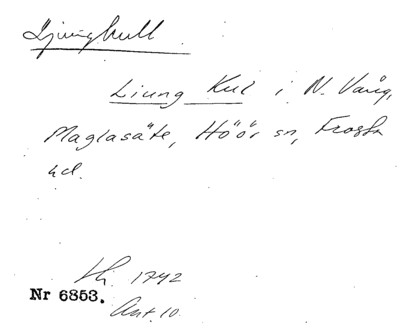 Ljungkull
Liung Kul i N. Vång,
Maglasäte, Höör sn, Frosta
hd.
Sk. 1792
Nr 6853.
Akt 10.